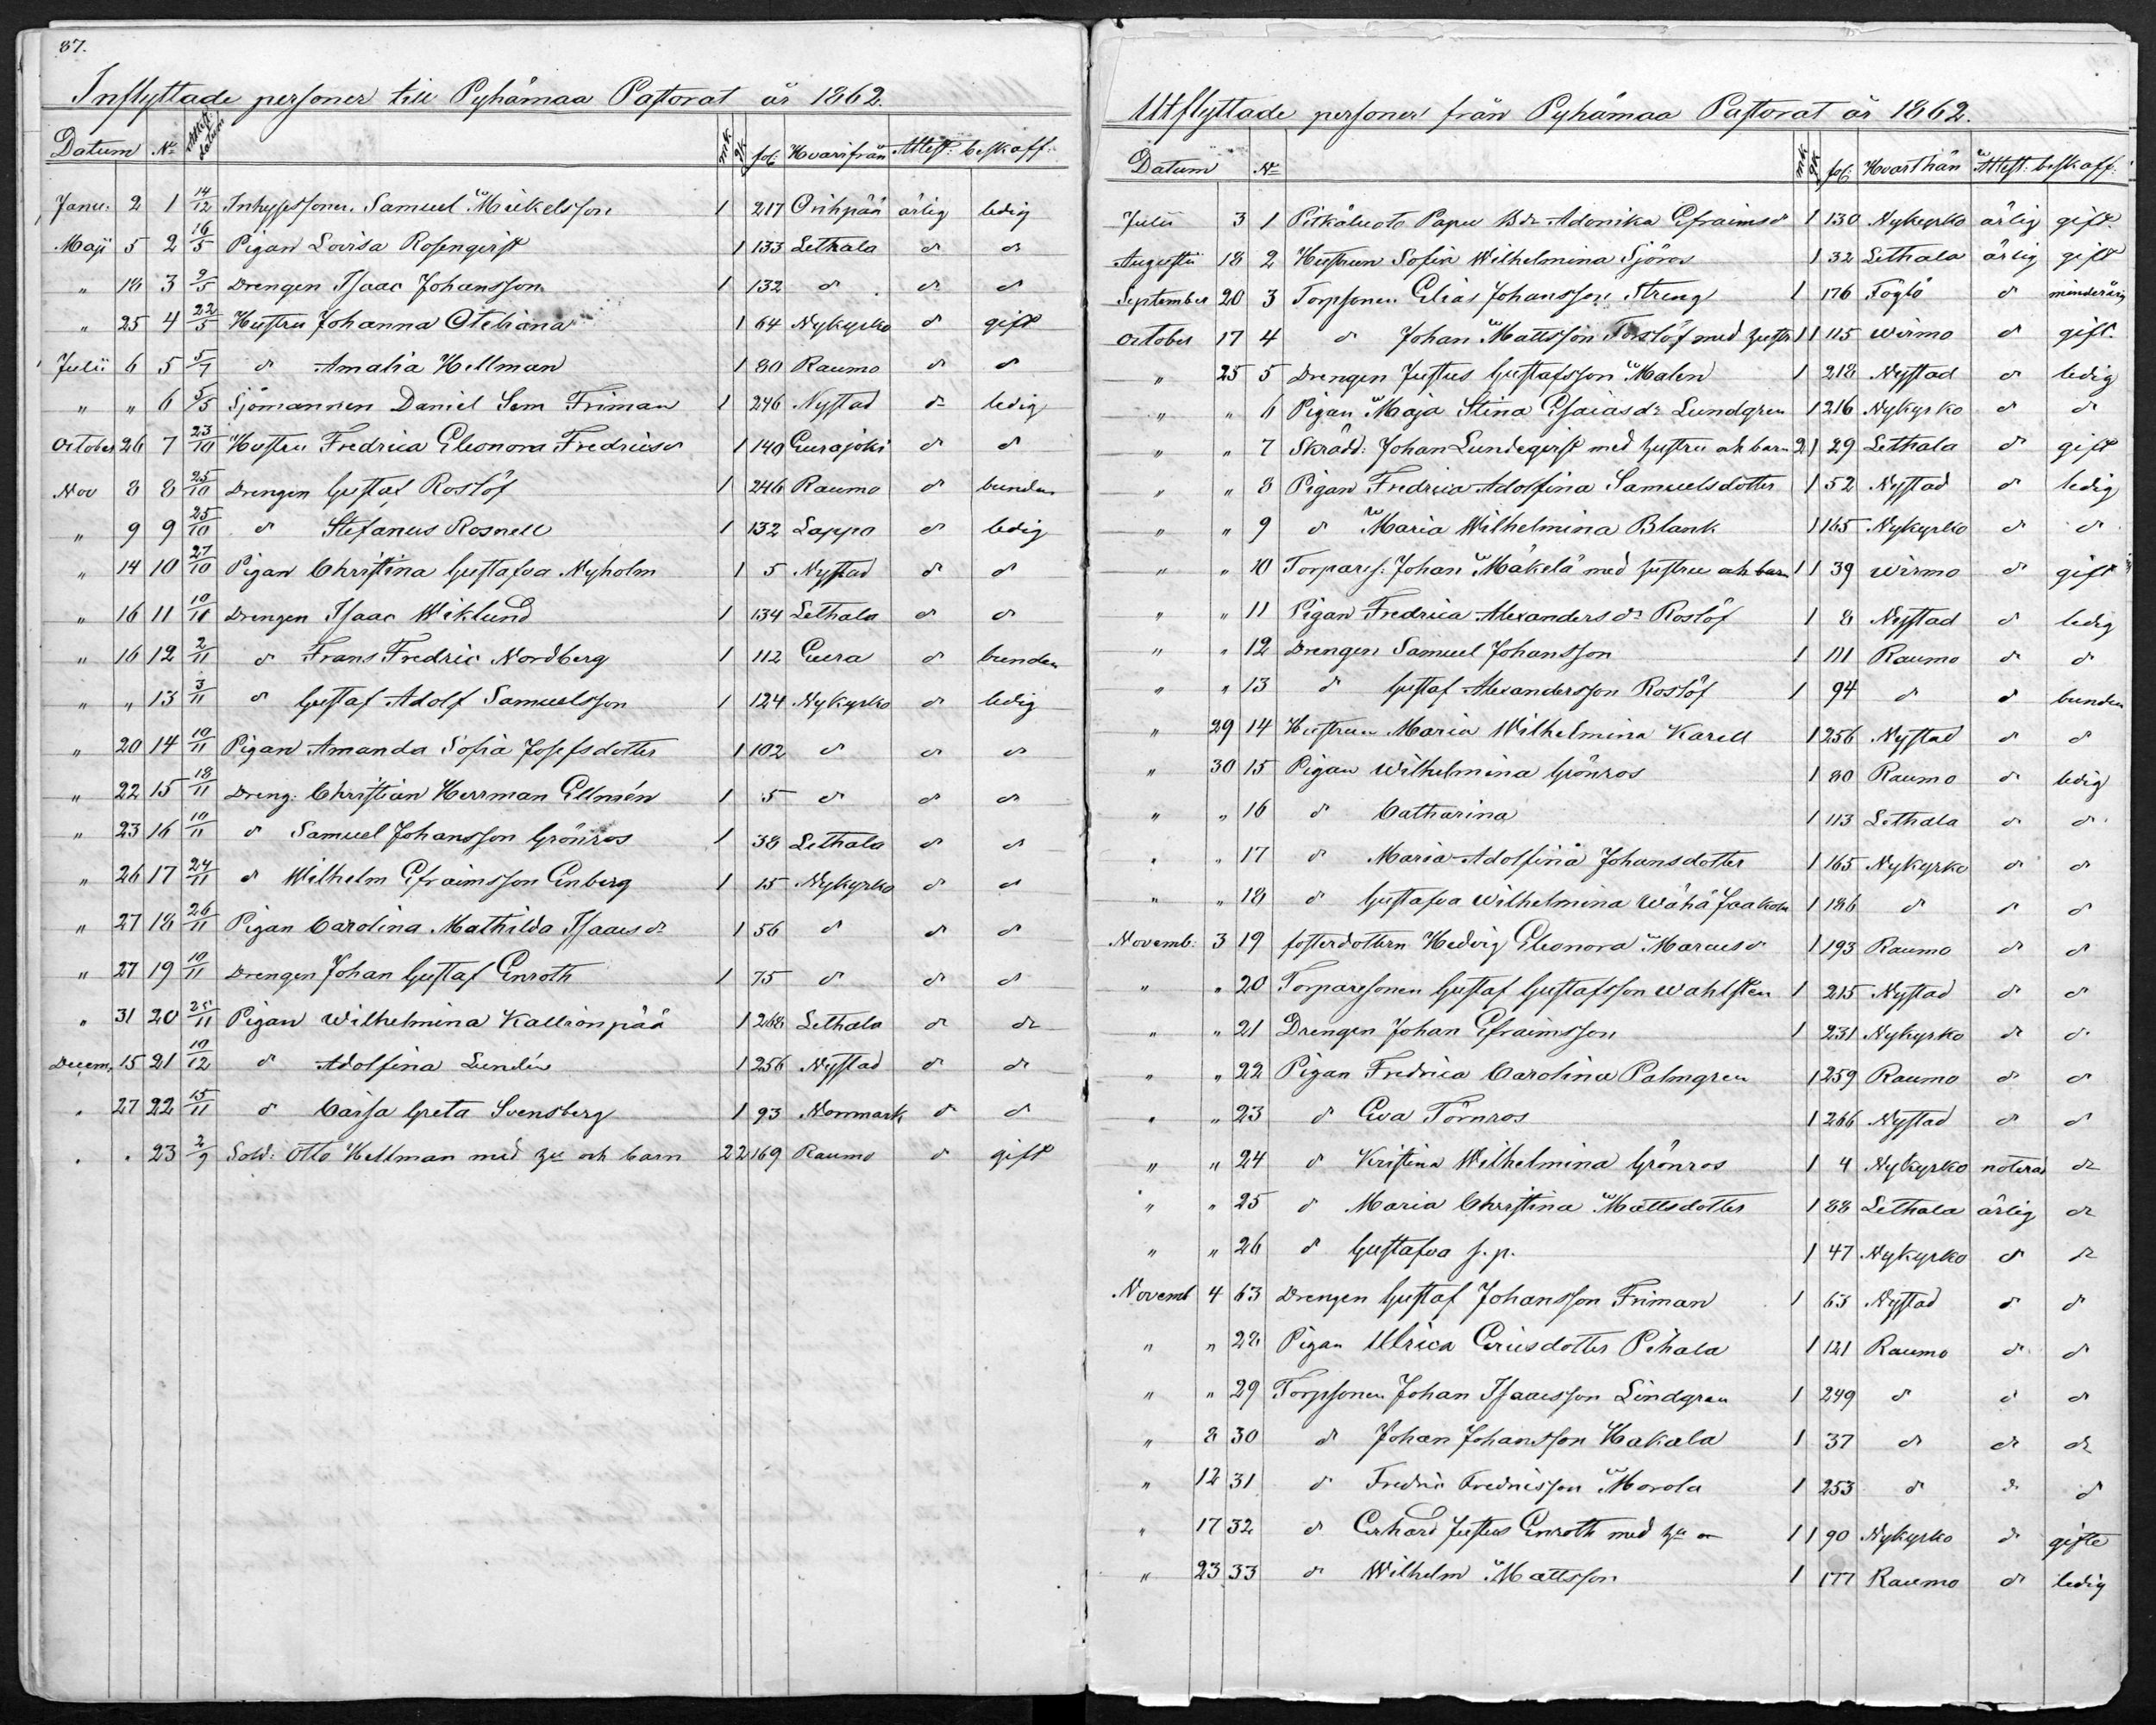 87.
Inflyttade personer till Pyhämaa Pastorat år 1862.
Datum No Attest: datum mk. qk. fol: Hvarifrån Attest: beskaff:
Janu. 2 1 14/12 Inhysessonen Samuel Mickelsson 1 217 Orihpää ärlig ledig
Maji 5 2 16/5 Pigan Lovisa Rosenqvist 1 133 Lethala d:o d:o
" 18 3 9/5 Drengen Isaac Johansson 1 132 d:o d:o d:o
" 25 4 22/5 Hustru Johanna Oteliana 1 64 Nykyrko d:o gift
Julii 6 5 5/7 d:o Amalia Hellman 1 80 Raumo d:o d:o
" " 6 5/5 Sjömannen Daniel Sem Friman 1 246 Nystad d:o ledig
October 26 7 23/10 Hustru Fredrica Eleonora Fredricsd:r 1 140 Eurajoki d:o d:o
Nov 8 8 25/10 Drengen Gustaf Roslöf 1 246 Raumo d:o bunden
" 9 9 25/10 d:o Stefanus Rosnell 1 132 Lappo d:o ledig
" 14 10 27/10 Pigan Christina Gustafva Nyholm 1 5 Nystad d:o d:o
" 16 11 10/11 Drengen Isaac Wiklund 1 134 Lethala d:o d:o
" 16 12 2/11 d:o Frans Fredric Nordberg 1 112 Eura d:o bunden
" " 13 3/11 d:o Gustaf Adolf Samuelsson 1 124 Nykyrko d:o ledig
" 20 14 10/11 Pigan Amanda Sofia Josefsdotter 1 102 d:o d:o d:o
" 22 15 18/11 Dreng. Christian Herrman Ellmén 1 5 d:o d:o d:o
" 23 16 10/11 d:o Samuel Johansson Grönros 1 38 Lethala d:o d:o
" 26 17 24/11 d:o Wilhelm Efraimsson Enberg 1 15 Nykyrko d:o d:o
" 27 18 26/11 Pigan Carolina Mathilda Isaacsd:r 1 56 d:o d:o d:o
" 27 19 10/11 Drengen Johan Gustaf Enroth 1 75 d:o d:o d:o
" 31 20 25/11 Pigan Wilhelmina Kallionpää 1 268 Lethala d:o d:o
Decem. 15 21 10/12 d:o Adolfina Lundén 1 256 Nystad d:o d:o
" 27 22 15/11 d:o Cajsa Greta Svensberg 1 93 Nonmark d:o d:o
" " 23 2/9 Sold: Otto Hellman med hu och barn 2 2 169 Raumo d:o gift
Utflyttade personer från Pyhämaa Pastorat år 1862.
Datum No mk. qk. fol: Hvarthän Attest: beskaff:
Julii 3 1 Pitkäluoto Papu Bd:r Adonika Efraimsd:r 1 130 Nykyrko ärlig gift.
Augusti 18 2 Hustrun Sofia Wilhelmina Sjöros 1 32 Lethala ärlig gift
September 20 3 Torpsonen Elias Johansson Streng 1 176 Föglö d:o minderårig
October 17 4 d:o Johan Mattsson Torslöf med hustr 1 1 115 Wirmo d:o gift.
" 25 5 Drengen Justus Gustafsson Malen 1 218 Nystad d:o ledig
" " 6 Pigan Maja Stina Esaiasd:r Lundgren 1 216 Nykyrko d:o d:o
" " 7 Skrädd: Johan Lundeqvist med hustru och barn 2 1 29 Lethala d:o gift
" " 8 Pigan Fredrica Adolfina Samuelsdotter 1 52 Nystad d:o ledig
" " 9 d:o Maria Wilhelmina Blank 1 165 Nykyrko d:o d:o
" " 10 Torpares: Johan Mäkelä med hustru och barn 1 1 39 Wirmo d:o gift
" " 11 Pigan Fredrica Alexandersd:r Roslöf 1 8 Nystad d:o ledig
" " 12 Drengen Samuel Johansson 1 111 Raumo d:o d:o
" " 13 d:o Gustaf Alexandersson Roslöf 1 94 d:o d:o bunden
" 29 14 Hustrun Maria Wilhelmina Karell 1 256 Nystad d:o d:o
" 30 15 Pigan Wilhelmina Grönros 1 80 Raumo d:o ledig
" " 16 d:o Catharina 1 113 Lethala d:o d:o
" " 17 d:o Maria Adolfina Johansdotter 1 165 Nykyrko d:o d:o
" " 18 d:o Gustafva Wilhelmina Wähä Jaakola 1 186 d:o d:o d:o
Novemb: 3 19 fosterdottern Hedvig Eleonora Marcusd:r 1 193 Raumo d:o d:o
" " 20 Torparesonen Gustaf Gustafsson Wahlsten 1 215 Nystad d:o d:o
" " 21 Drengen Johan Efraimsson 1 231 Nykyrko d:o d:o
" " 22 Pigan Fredrica Carolina Palmgren 1 259 Raumo d:o d:o
" " 23 d:o Eva Törnros 1 266 Nystad d:o d:o
" " 24 d:o Kristina Wilhelmina Grönros 1 4 Nykyrko noterad d:o
" " 25 d:o Maria Christina Mattsdotter 1 88 Lethala ärlig d:o
" " 26 d:o Gustafva s.p. 1 47 Nykyrko d:o d:o
Novemb 4 63 Drengen Gustaf Johansson Friman 1 63 Nystad d:o d:o
" " 28 Pigan Ulrica Ericsdotter Pihala 1 121 Raumo d:o d:o
" " 29 Torpsonen Johan Isaacsson Lindgren 1 249 d:o d:o d:o
" 8 30 d:o Johan Johansson Hakala 1 37 d:o d:o d:o
" 12 31 d:o Fredric Fredricsson Morola 1 253 d:o d:o d:o
" 17 32 d:o Erhard Justus Enroth med hu 1 1 90 Nykyrko d:o gifte
" 23 33 d:o Wilhelm Mattsson 1 177 Raumo d:o ledig